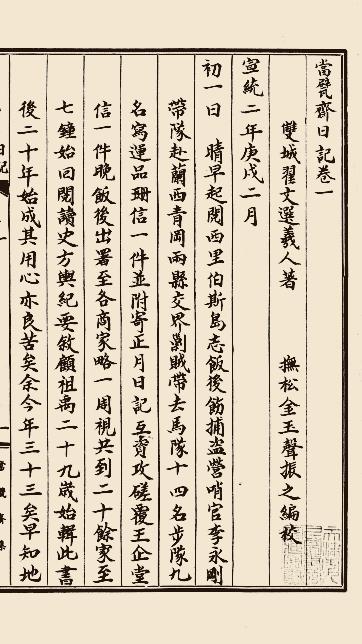 當甓齋日記卷一
雙城翟文選羲人著　撫松金玉聲振之編校
宣統二年庚戌二月
初一日　晴早起閱西里伯斯島志飯後飭捕盜營哨官李永剛
帶隊赴蘭西青岡兩縣交界剿賊帶去馬隊十四名步隊九
名寫運品珊信一件並附寄正月日記互資攻磋覆王企堂
信一件晚飯後出署至各商家略一周視共到二十餘家至
七鐘始回閱讀史方輿紀要敘顧祖禹二十九歲始輯此書
後二十年始成其用心亦良苦矣余今年三十三矣早知地